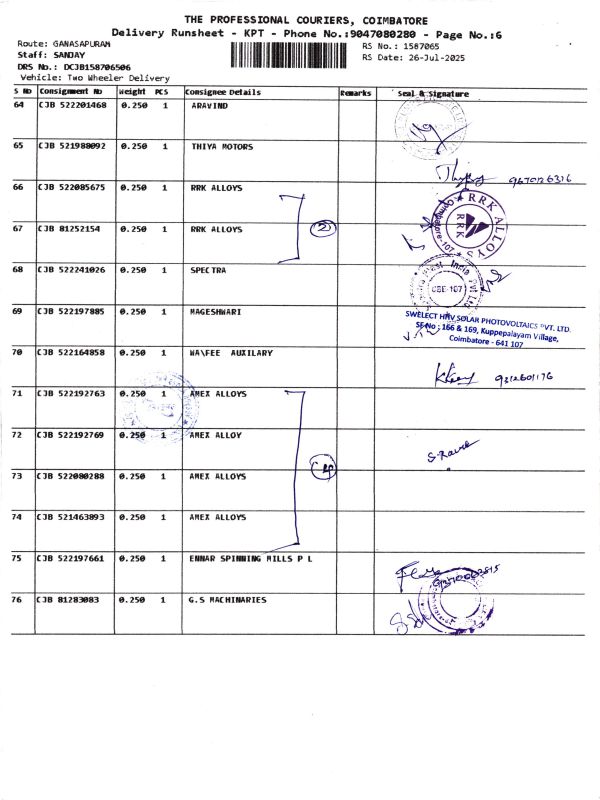 THE PROFESSIONAL COURIERS, COIMBATORE
Delivery Runsheet - KPT - Phone No.:9047080280 - Page No.:6
Route: GANASAPURAM
RS No.: 1587065
Staff: SANJAY
RS Date: 26-Jul-2025
DRS No.: DCJB158706506
Vehicle: Two Wheeler Delivery
S No Consignment No Weight PCS Consignee Details Remarks Seal & Signature
64 CJB 522201468 0.250 1 ARAVIND
65 CJB 521988092 0.250 1 THIYA MOTORS
9670126316
66 CJB 522085675 0.250 1 RRK ALLOYS
RRK ALLOYS
RRK
Coimbatore-107
2
67 CJB 81252154 0.250 1 RRK ALLOYS
68 CJB 522241026 0.250 1 SPECTRA
India Pvt Ltd
CBE-107
69 CJB 522197885 0.250 1 MAGESHWARI
SWELECT HHV SOLAR PHOTOVOLTAICS PVT. LTD.
SF No : 166 & 169, Kuppepalayam Village,
Coimbatore - 641 107
70 CJB 522164858 0.250 1 WA\FEE AUXILARY
9312601176
71 CJB 522192763 0.250 1 AMEX ALLOYS
72 CJB 522192769 0.250 1 AMEX ALLOY
4
73 CJB 522080288 0.250 1 AMEX ALLOYS
74 CJB 521463893 0.250 1 AMEX ALLOYS
75 CJB 522197661 0.250 1 ENNAR SPINNING MILLS P L
76 CJB 81283083 0.250 1 G.S MACHINARIES